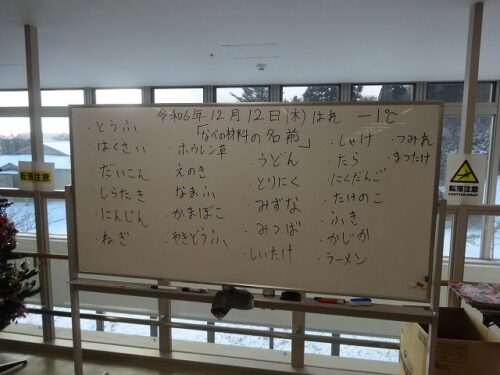 令和6年12月12日(木)はれ -1℃
「なべの材料の名前」
・とうふ
・はくさい
・だいこん
・しらたき
・にんじん
・ねぎ
・ホウレン草
・えのき
・なまふ
・かまぼこ
・やきどうふ
・うどん
・とりにく
・みずな
・みつば
・しいたけ
・しゃけ
・たら
・にくだんご
・たけのこ
・ふき
・かじか
・ラーメン
・つみれ
・まつたけ
転落注意
転落注意